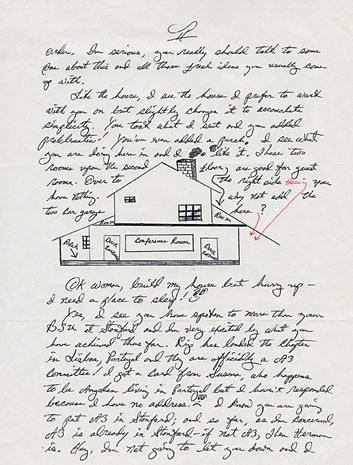 order. I'm serious, you really should talk to some
one about this and all those fresh ideas you usually come
up with.
Like the house, I see the house I prefer to work
with you on but slightly change it to accentuate
simplicity! You took what I sent and you added
You've even added a porch, I see what
you are doing here in and I like it. These two
rooms upon the second floor are good for guest
room. Over to the right side being you
have nothing. why not add the
two car garage here?
Room
Room
Porch
Conference Room
OK woman, build my house but hurry up—
I need a place to sleep!
Yes, I see you have spoken to more than your
BSU at Stanford and I'm very excited by what you
have achieved thus far. has landed the Chapter
in Lisbon, Portugal and they are officially a A3
Committee! I got a card from who happens
to be Angolan living in Portugal but I haven't responded
because I have no address. I know you are going
to put A3 in Stanford; and so far, as I'm concerned,
A3 is already in Stanford—if not A3, then Herman
is. Hey, I'm not going to let you down and I